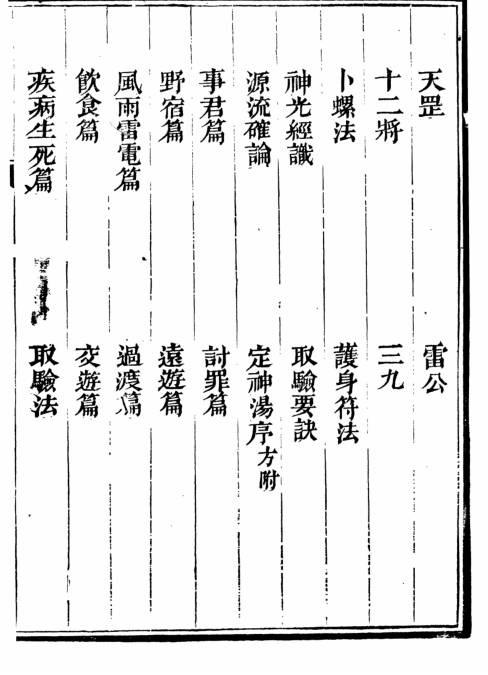 天罡　雷公
十二將　三九
卜螺法　護身符法
神光經讖　取驗要訣
源流確論　定神湯序方附
事君篇　討罪篇
野宿篇　遠遊篇
風雨雷電篇　過渡篇
飲食篇　交遊篇
疾病生死篇　取驗法